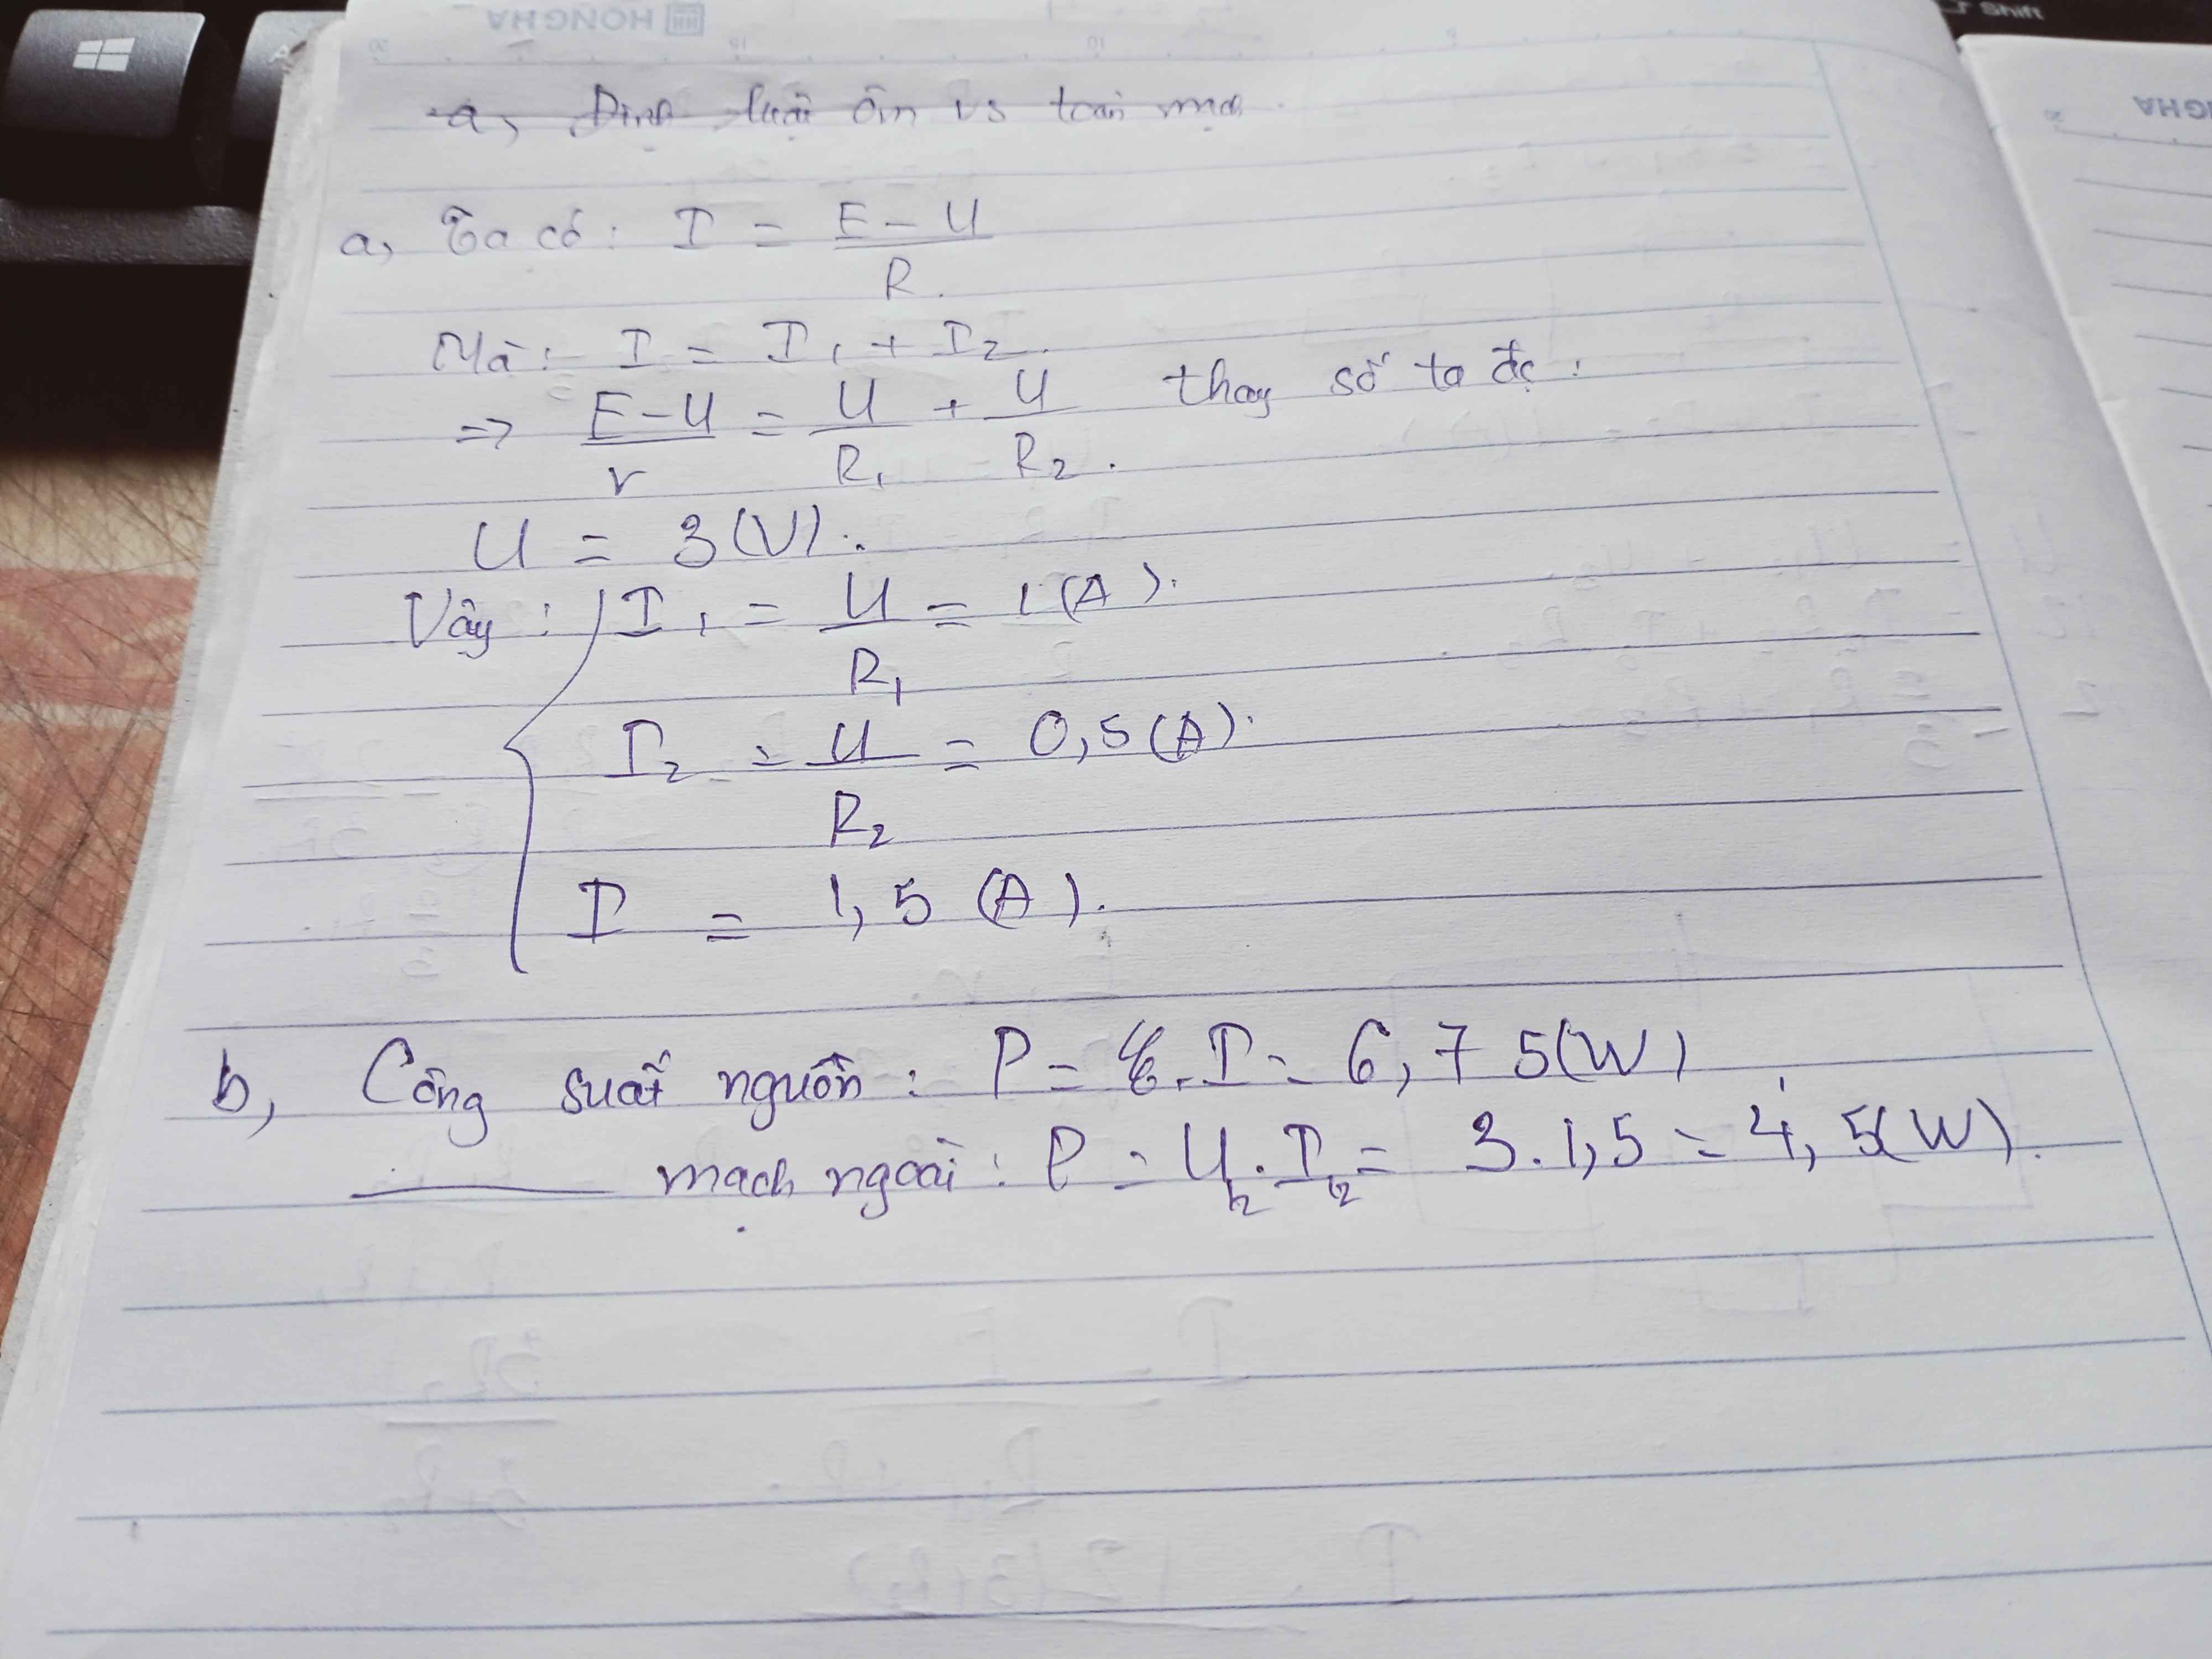 HONGHA
Shift
a, Định luật ôm vs toàn mạch.
a, Ta có: I = E - U / R.
Mà: I = I1 + I2.
=> E-U / r = U / R1 + U / R2. thay số ta đc:
U = 3 (V).
Vây: I1 = U / R1 = 1 (A).
I2 = U / R2 = 0,5 (A).
I = 1,5 (A).
b, Công suất nguồn: P = E.I = 6,75(W)
mạch ngoài: P = U12.I12 = 3.1,5 = 4,5(W).